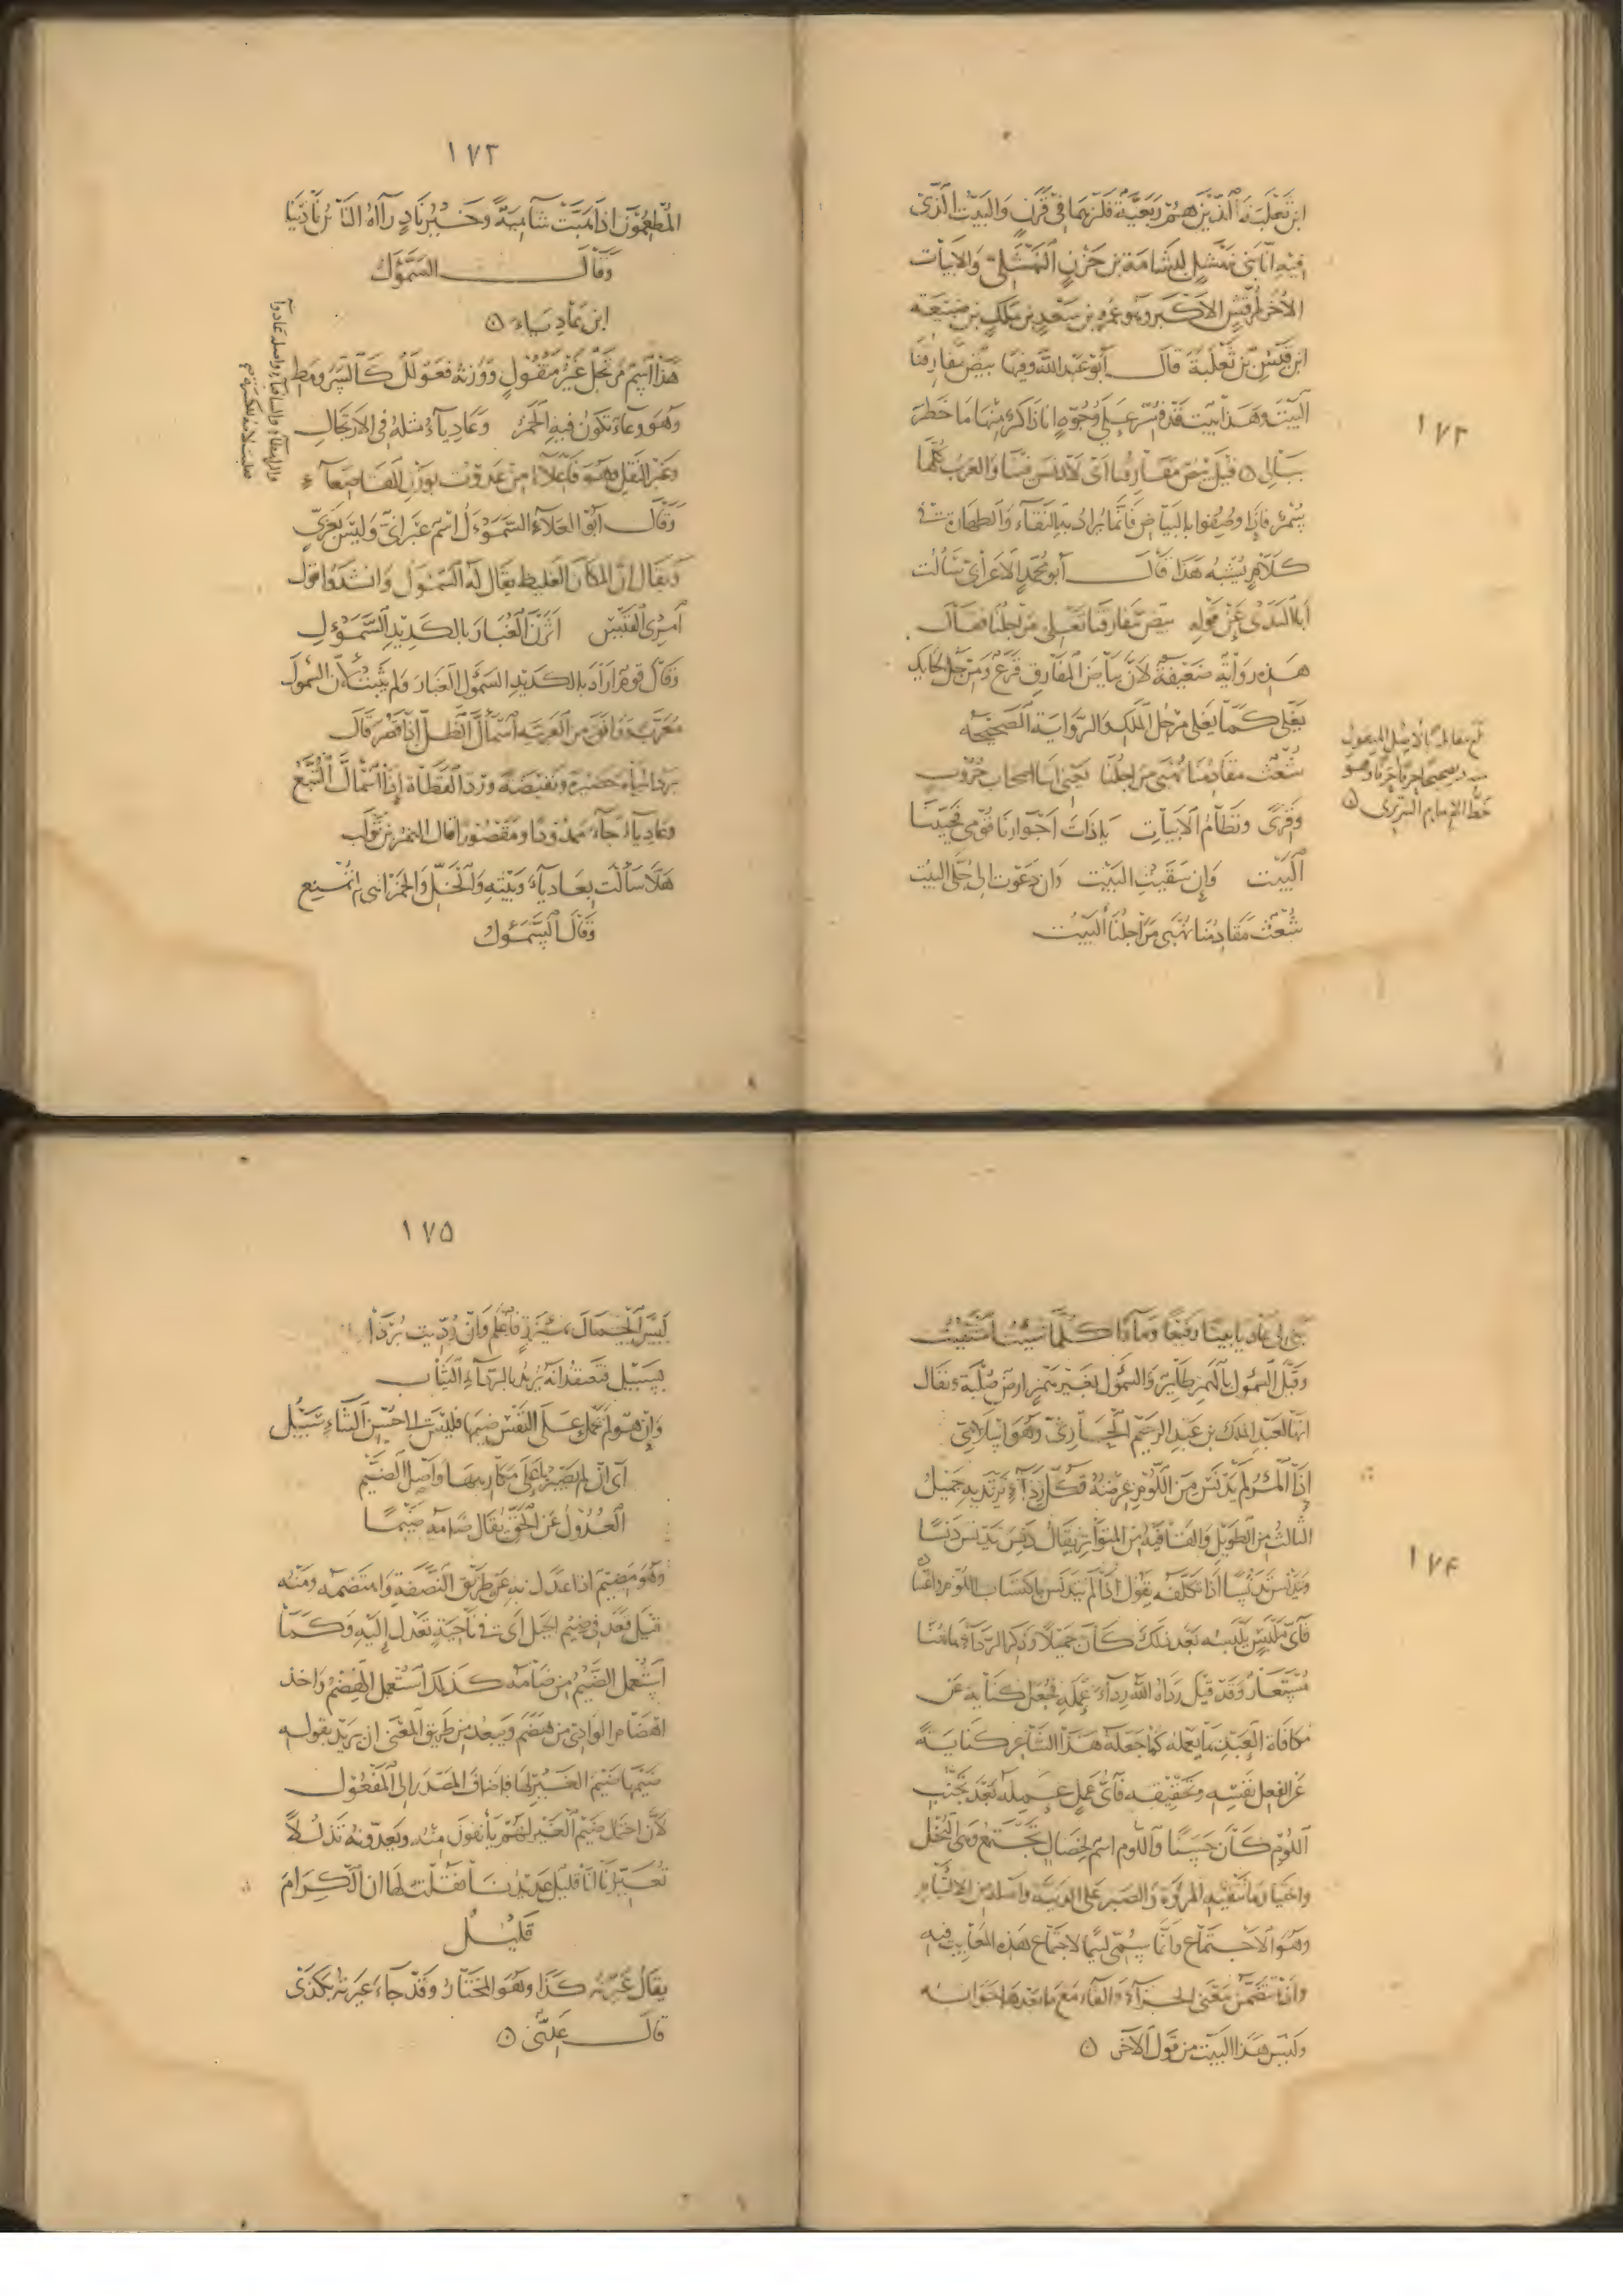 ابن ثعلبة الذين هم ربعية فلزهما في قرن والبيت الذي
فيه انا بني نهشل لبشامة بن حزن النهشلي والابيات
الأخر لمرقش الاكبر وهو عمرو بن سعد بن ملك بن ضبيعة
ابن قيس بن ثعلبة قال أبو عبد الله وفيها بيض مفارقنا
البيت وهذا بيت قد فسر على وجوه انا ذاكر منها ما خطر
ببالي ۞ قيل بيض مفارقنا اي لا دنس فينا والعرب كلها
سمر فإذا وصفوا بالبياض فانما يراد به النقاء والطهارة في
كلام يشبه هذا قال أبو محمد الأعرابي سألت
أبا الندى عن قوله بيض مفارقنا تغلي مراجلنا فقال
هذه رواية ضعيفة لأن بياض المفارق قرع ومرجل الحايك
يغلي كما يغلي مرجل الملك والرواية الصحيحة
شعث مقادمنا نهبى مراجلنا يحيى ابنا اصحاب حروب
وقرى ونظام الأبيات يا ذات اجوارنا قومي فحيينا
البيت وإن سقيت البيت وان دعوت الى جلى البيت
شعث مقادمنا نهبى مراجلنا البيت
١٧٢
بلغ مقابلة بالأصل المنقول
خط الإمام التبريزي ۞
١٧٣
المطعمون اذا هبت شآمية وخير ناد رآه الناس نادينا
وقال السموأل
ابن عادياء ۞
هذا اسم مرتجل غير منقول ووزنه فعولل كالسرومط
وهو وعاء تكون فيه الخمر وعادياء مثله في الارتجال
وغير النقل وهو فاعلاء من عدوت بوزن القاصعاء
وقال أبو العلاء السموءل اسم عبراني وليس بعربي
ويقال ان المكان الغليظ يقال له السمول وانشدوا قول
امرئ القيس اثرن الغبار بالكديد السموءل
وقال قوم اراد بالكديد السمول الغبار ولم يثبت لأن السمول
معرب ووافق من العربية اسمأل الظل إذا قصر قال
يرد المياه حضيرة ونفيضة ورد القطاة إذا اسمأل التبع
وعادياء جاء ممدودا ومقصورا قال النمر بن تولب
هلا سألت بعادياء وبيته والخل والخمر التي لم تمنع
وقال السموءل
بنى لي عاديا بيتا رفيعا وماءا كلما شئت استقيت
وقيل السمول بالهمز طاير والسمول بغير همز ارض صلبة ويقال
انها لعبد الملك بن عبد الرحيم الحارثي وهو اسلامي
إذا المرء لم يدنس من اللؤم عرضه فكل رداء يرتديه جميل
الثالث من الطويل والقافية من المتواتر يقال دنس يدنس دنسا
وتدنس تدنسا اذا تكلفه يقول اذا لم يتدنس باكتساب اللؤم
فأي ملبس يلبسه بعد ذلك كان جميلا وذكر الرداء هاهنا
مستعار وقد قيل رداه الله رداء عمله فجعل كناية عن
مكافاة العبد بما يعمله كما جعله هذا الشاعر كناية
عن الفعل نفسه وتحقيقه فأي عمل عمله بعد تجنب
اللؤم كان حسنا واللؤم اسم لخصال تجتمع وهي البخل
واختيار ما تنفيه المروة والصبر على الدنية واصله من الالتيام
وهو الاجتماع وانما سمي لئيما لاجتماع هذه المعايب فيه
واذا تضمن معنى الجزاء والفاء مع ما بعدها جوابه
وليس هذا البيت من قول الآخر ۞
١٧٤
١٧٥
ليس الجمال بمئزر فاعلم وان رديت بردا
بسبيل فتعتقد انه يريد بالرداء الثياب
وإن هو لم يحمل على النفس ضيمها فليس الى حسن الثناء سبيل
أي ان لم يصبرها على مكارهها واصل الضيم
العدول عن الحق يقال ضامه ضيما
وهو مضيم اذا عدل به عن طريق النصفة واهتضمه ومنه
قيل قعد في ضيم الجبل أي في ناحية تعدل إليه وكما
استعمل الضيم من ضامه كذلك استعمل الهضم واخذ
اهضام الوادي من هضم ويبعد من طريق المعنى ان يريد بقوله
ضيمها ضيم الغير لها فاضاف المصدر إلى المفعول
لأن احتمال ضيم الغير لهم يأنفون منه ويعدونه تذللا
تعيرنا انا قليل عديدنا فقلت لها ان الكرام
قليل
يقال عيرته كذا وهو المختار وقد جاء عيرته بكذى
قال عدي ۞